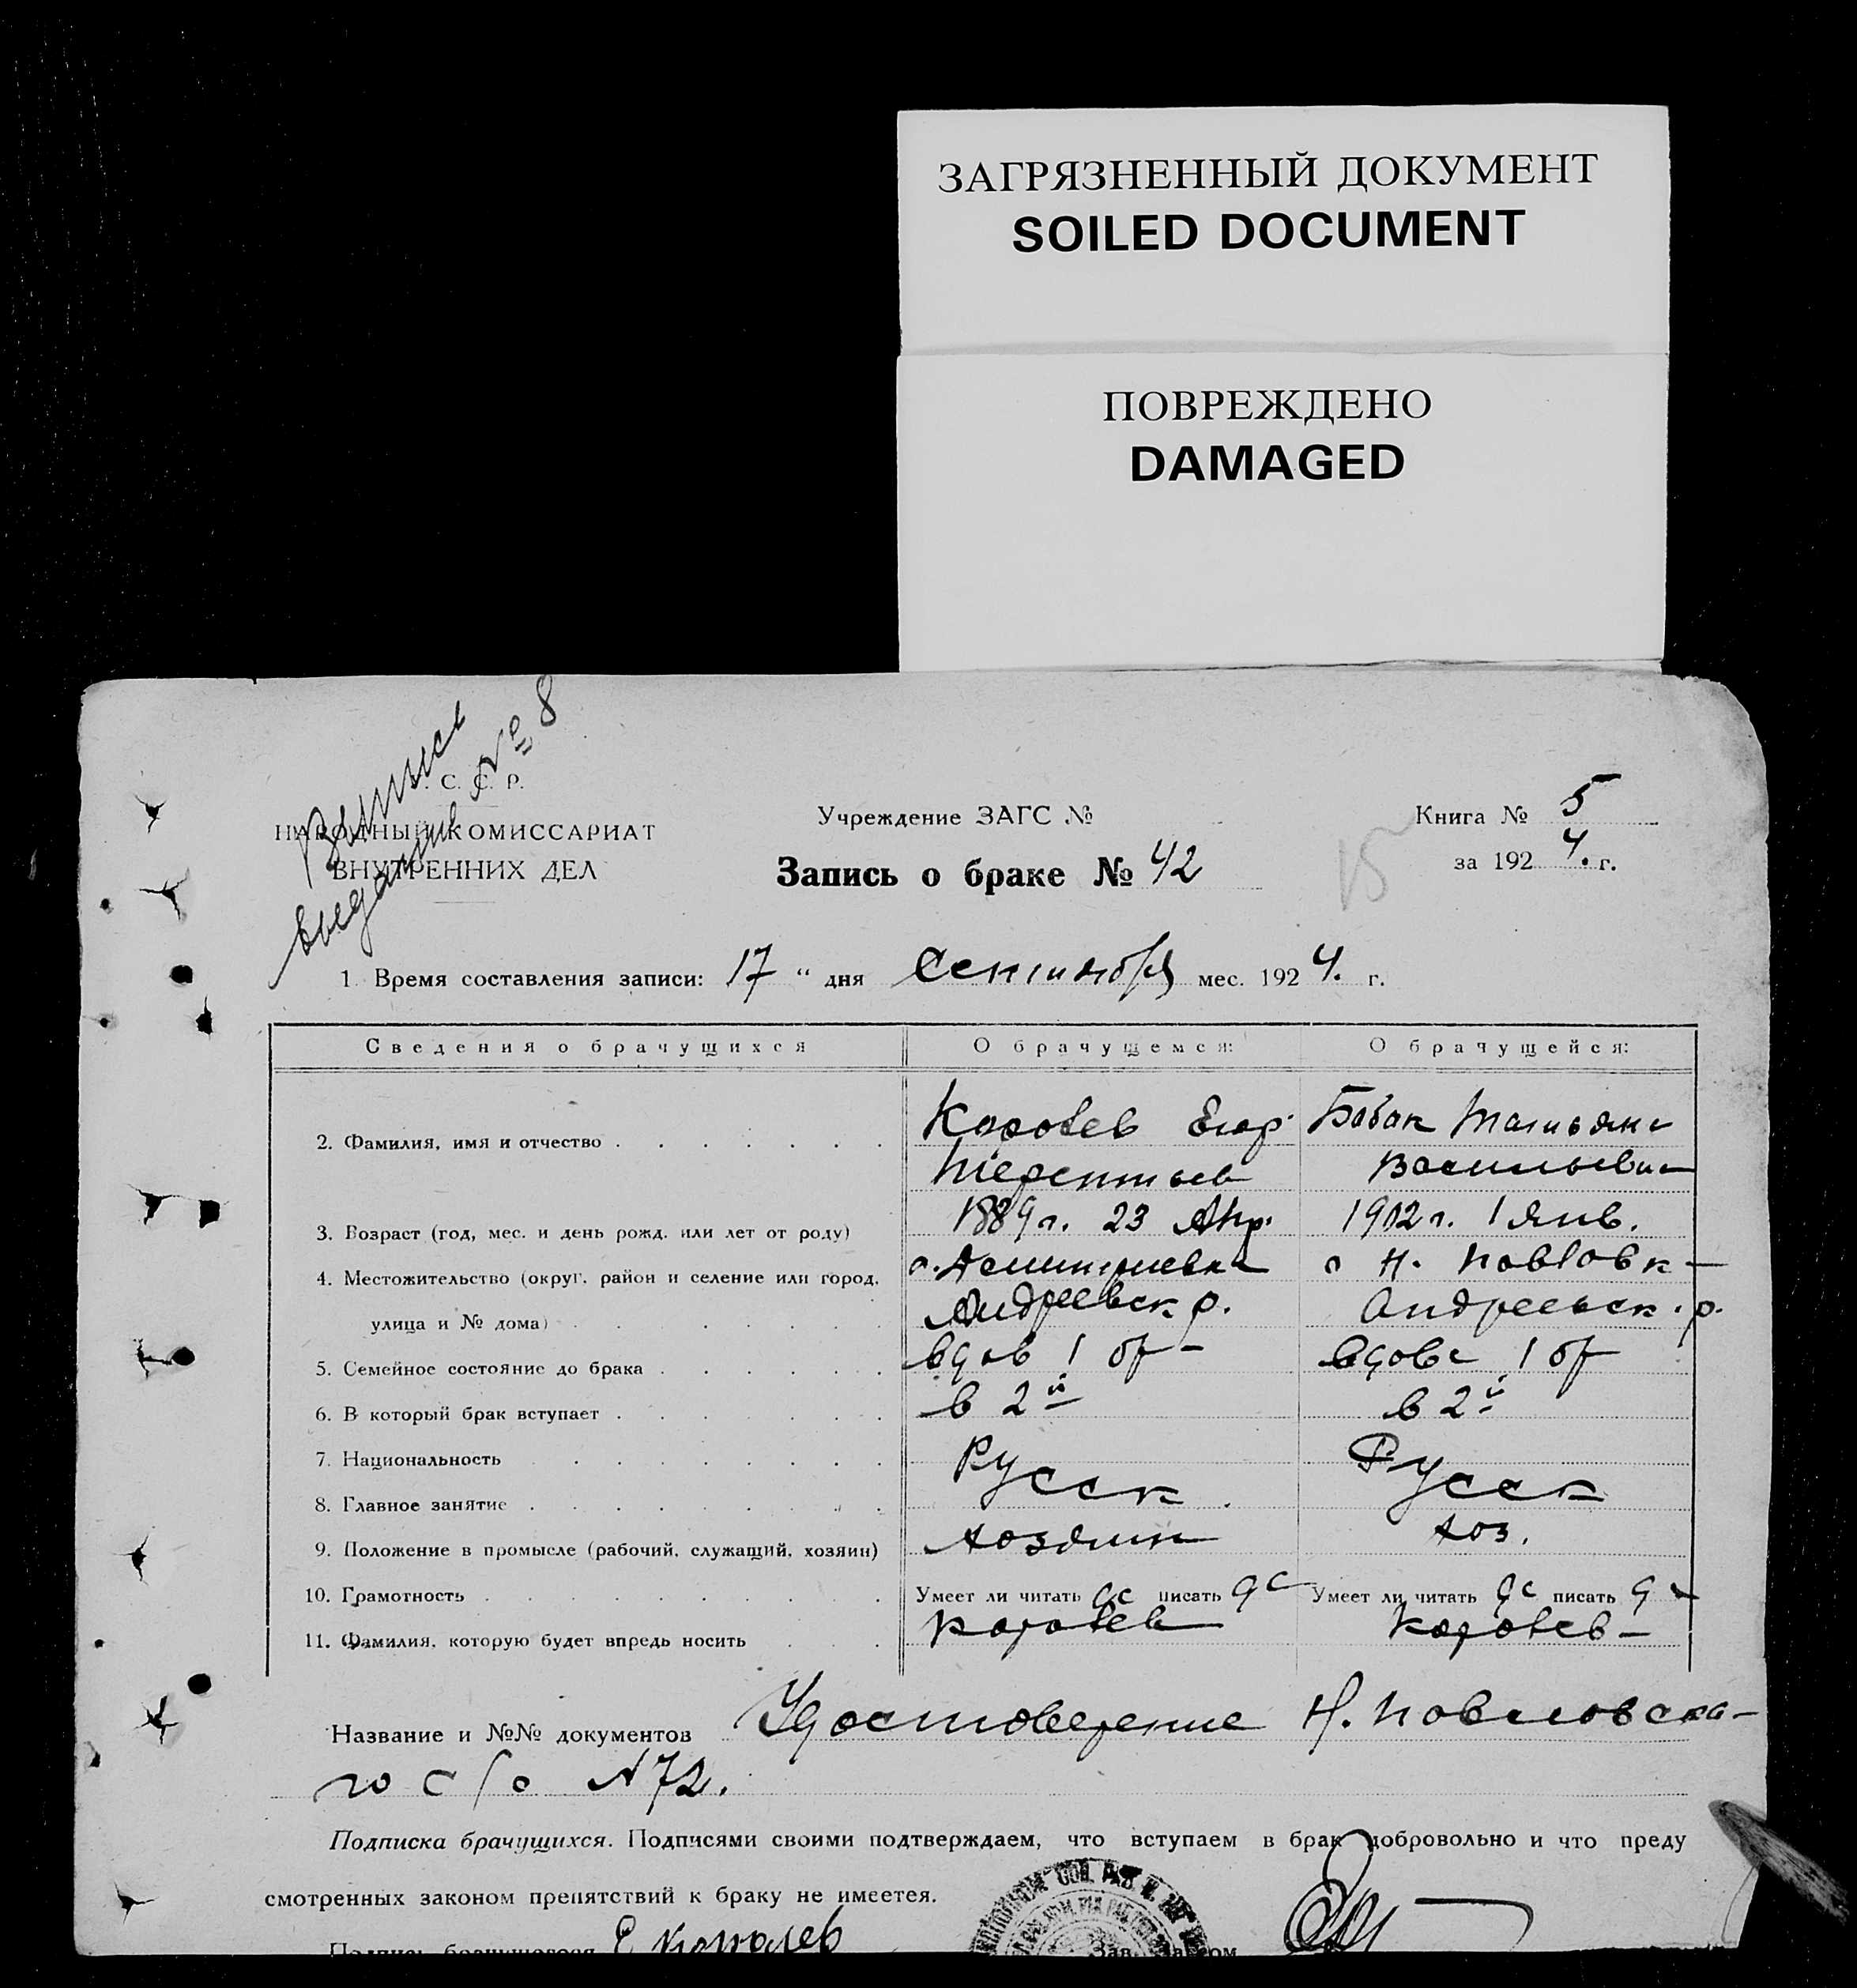 ЗАГРЯЗНЕННЫЙ ДОКУМЕНТ
SOILED DOCUMENT
ПОВРЕЖДЕНО
DAMAGED
Выпись
выдана № 8
С. С. Р.
НАРОДНЫЙ КОМИССАРИАТ
ВНУТРЕННИХ ДЕЛ
Учреждение ЗАГС №
Запись о браке № 42
Книга № 5
за 1924. г.
15
1. Время составления записи: 17 " дня Сентября мес. 1924. г.
Сведения о брачущихся О брачущемся: О брачущейся:
2. Фамилия, имя и отчество Коровев Егор Бабак Татьяна
Терентьев Васильевна
3. Возраст (год, мес. и день рожд. или лет от роду) 1889 г. 23 Апр. 1902 г. 1 Янв.
4. Местожительство (округ, район и селение или город, с. Дмитриевка с Н. Павловк
улица и № дома) Андреевск р. Андреевск. р.
5. Семейное состояние до брака вдов 1 бр вдова 1 бр
6. В который брак вступает в 2й в 2й
7. Национальность Русск Русск
8. Главное занятие
9. Положение в промысле (рабочий, служащий, хозяин) хозяин хоз.
10. Грамотность Умеет ли читать да писать да Умеет ли читать да писать да
11. Фамилия, которую будет впредь носить Коровев Коровев
Название и №№ документов Удостоверение Н. Павловска-
го с/с №72.
Подписка брачущихся. Подписями своими подтверждаем, что вступаем в брак добровольно и что преду
смотренных законом препятствий к браку не имеется.
Подпись брачущегося Е
Зав. Загсом